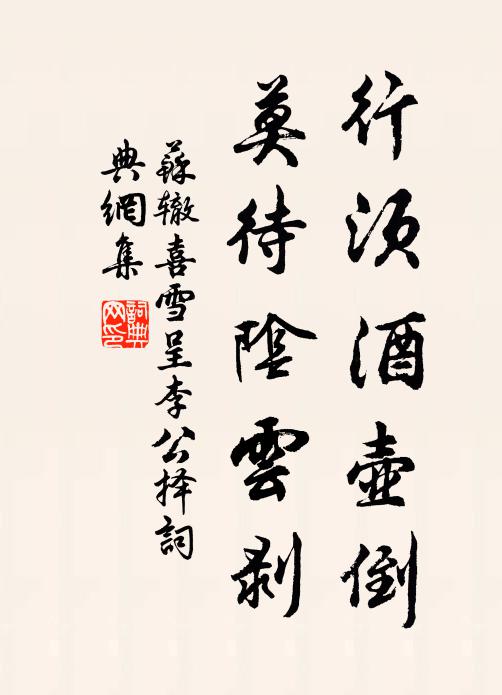 行須酒壺倒
莫待陰雲剝
蘇辙喜雪呈李公择詞
典網集
詞典
网印